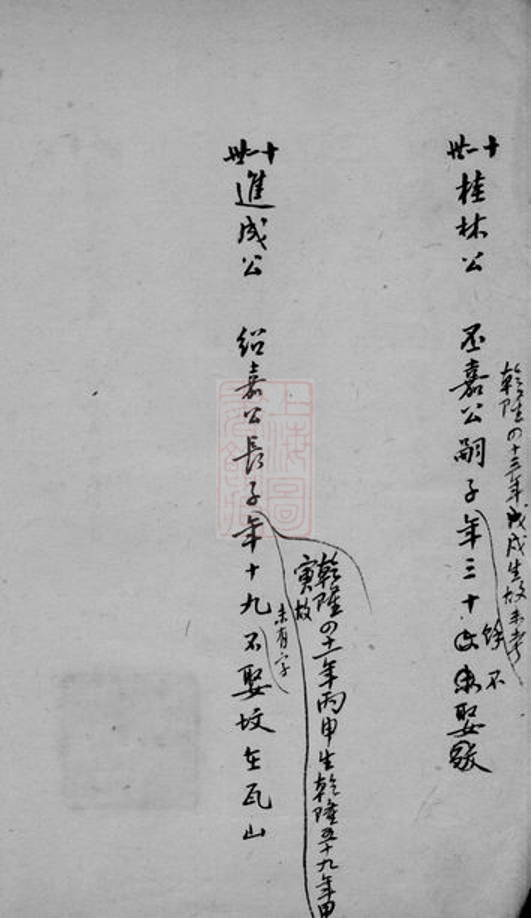 乾隆四十三年戊戌生故未考
十一世桂林公 丕嘉公嗣子年三十餘不娶歿
乾隆四十一年丙申生乾隆五十九年甲
寅故
未有字
十一世進成公 紹嘉公長子年十九不娶坟在瓦山
上海圖